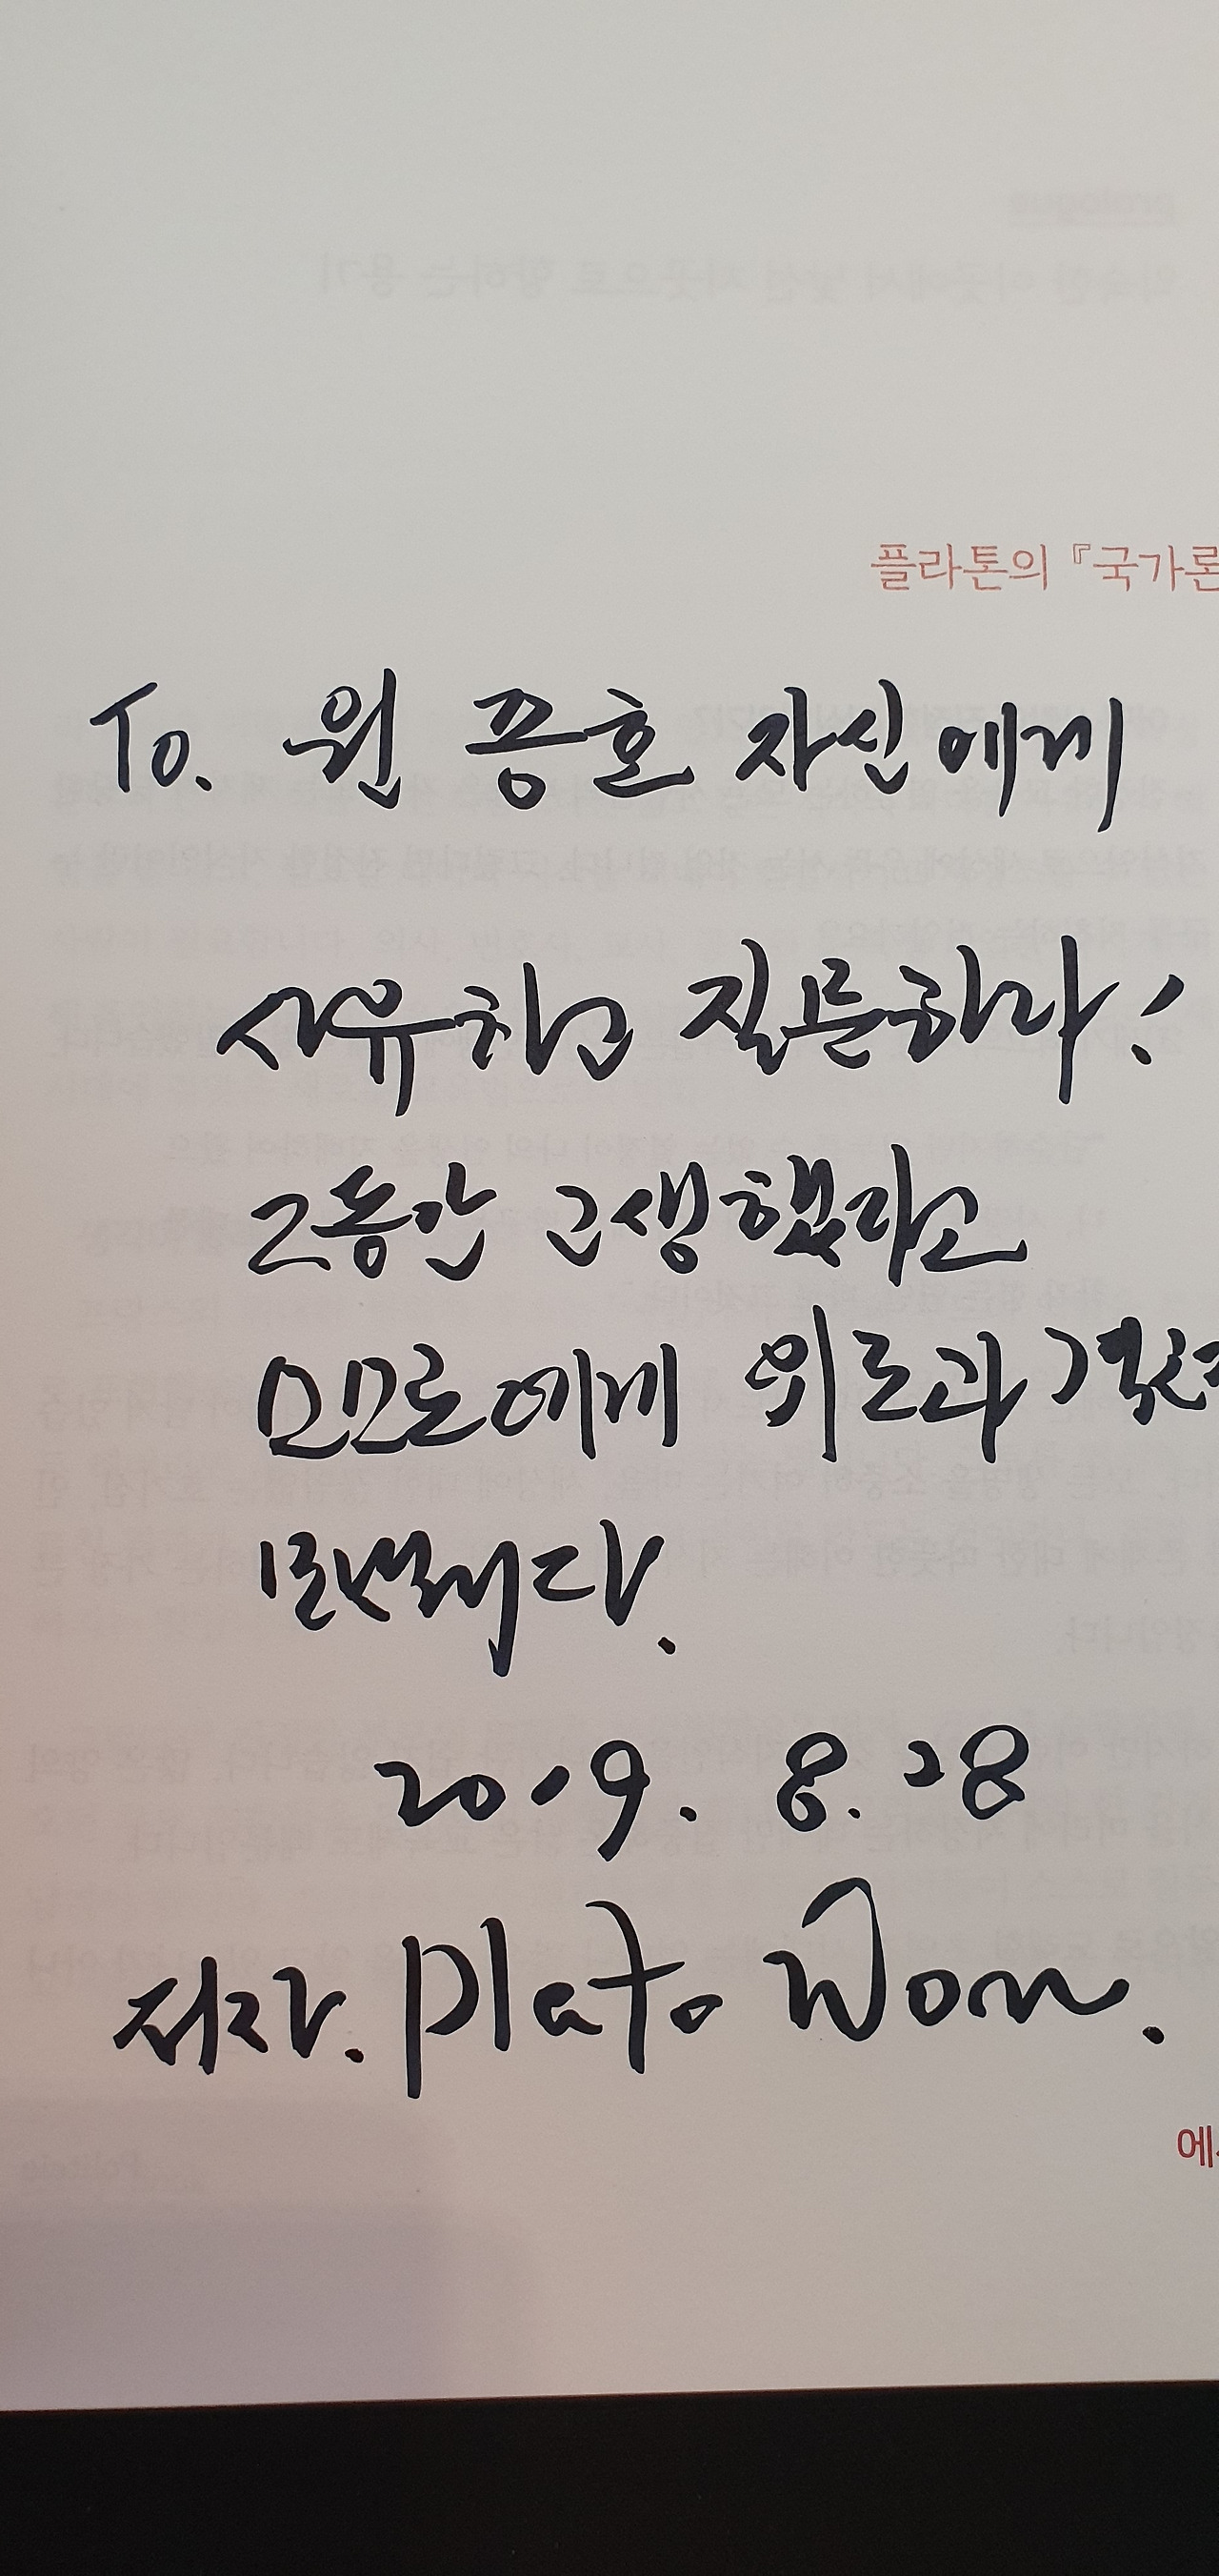 플라톤의 『국가론
To. 원 자신에게
사유하고 질문하라!
그동안 고생했다고
위로과
2019. 8. 28
저자. Plato Won.